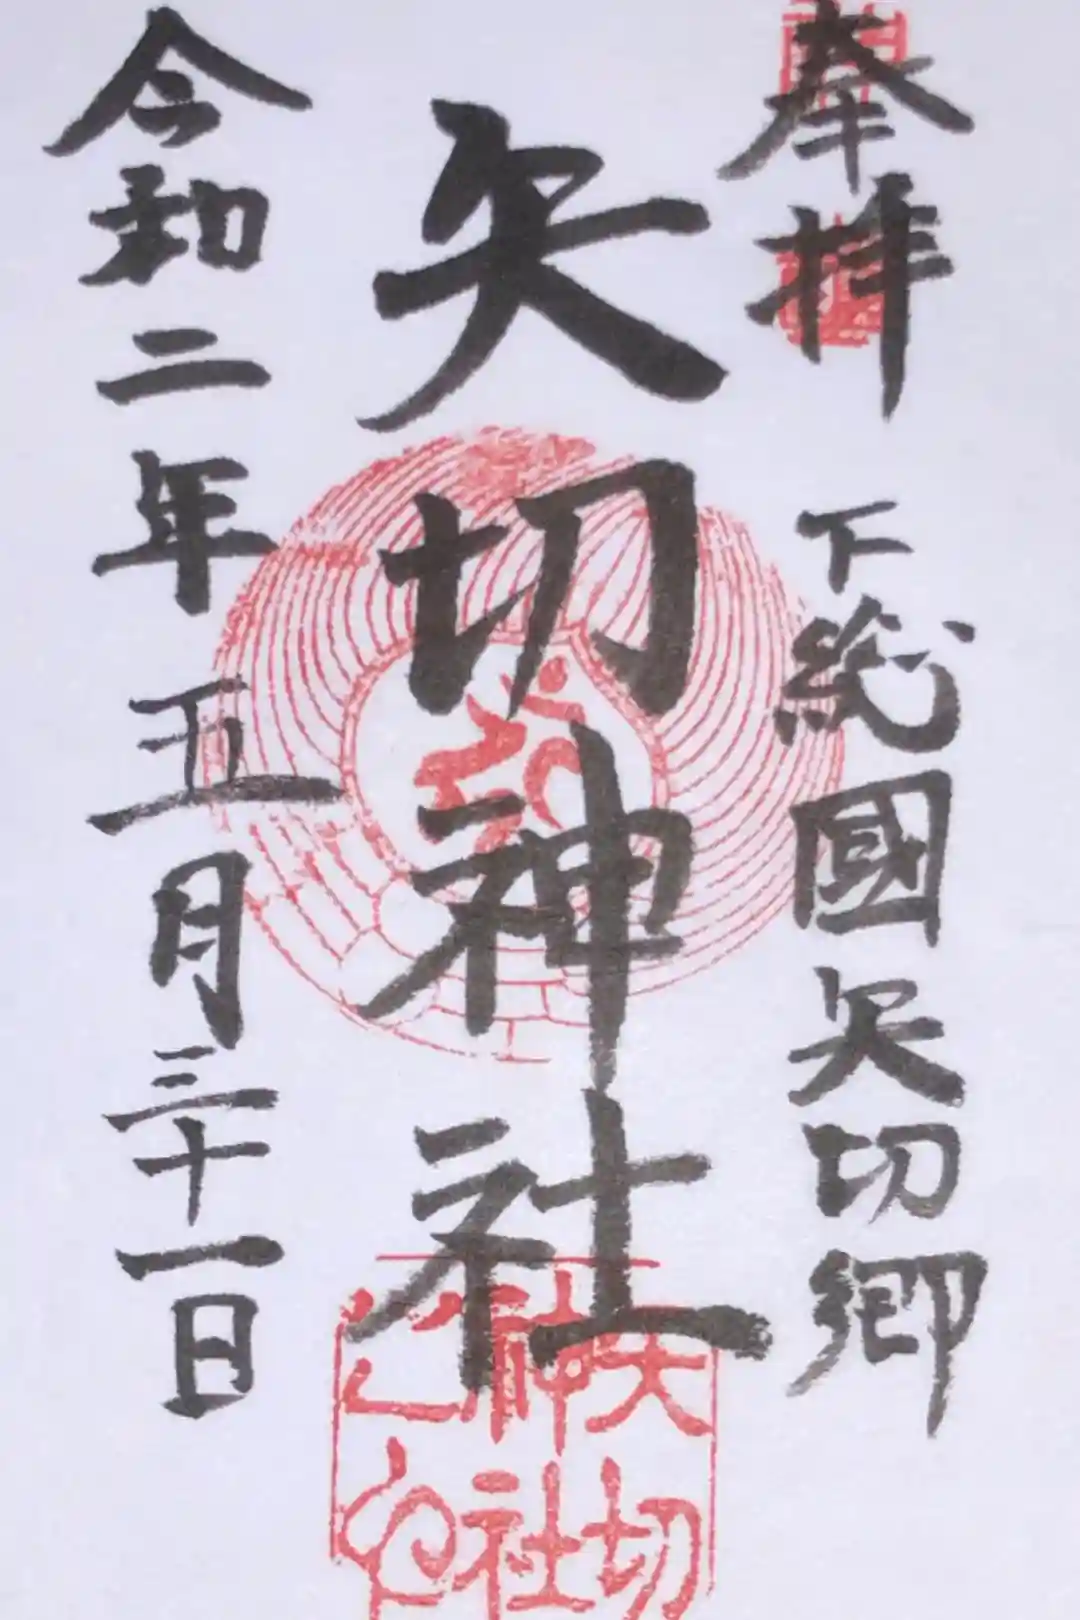 奉拝 下総國矢切郷
矢切神社
令和二年五月三十一日
矢切
神社